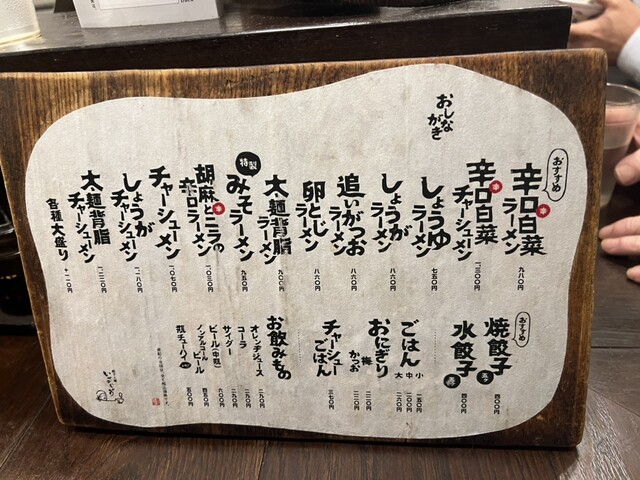 おしながき
おすすめ
辛口白菜ラーメン 九八〇円
辛口白菜チャーシューメン 一、三〇〇円
しょうゆラーメン 七五〇円
しょうがラーメン 八六〇円
追いがつおラーメン 八六〇円
卵とじラーメン 八六〇円
太麺背脂ラーメン 九〇〇円
特製みそラーメン 九五〇円
胡麻とニラの辛口ラーメン 一、〇〇〇円
チャーシューメン 一、〇七〇円
しょうがチャーシューメン 一、一八〇円
太麺背脂チャーシューメン 一、二二〇円
各種大盛り +一二〇円
おすすめ
焼餃子 五ケ 四〇〇円
水餃子 四〇〇円
ごはん
小 一五〇円
中 二〇〇円
大 二六〇円
おにぎり
梅 二二〇円
かつお 二二〇円
チャーシューごはん 三七〇円
お飲みもの
オレンヂジュース 二九〇円
コーラ 二九〇円
サイダー 二九〇円
ビール(中瓶) 六〇〇円
ノンアルコールビール 四五〇円
瓶チューハイ 五〇〇円